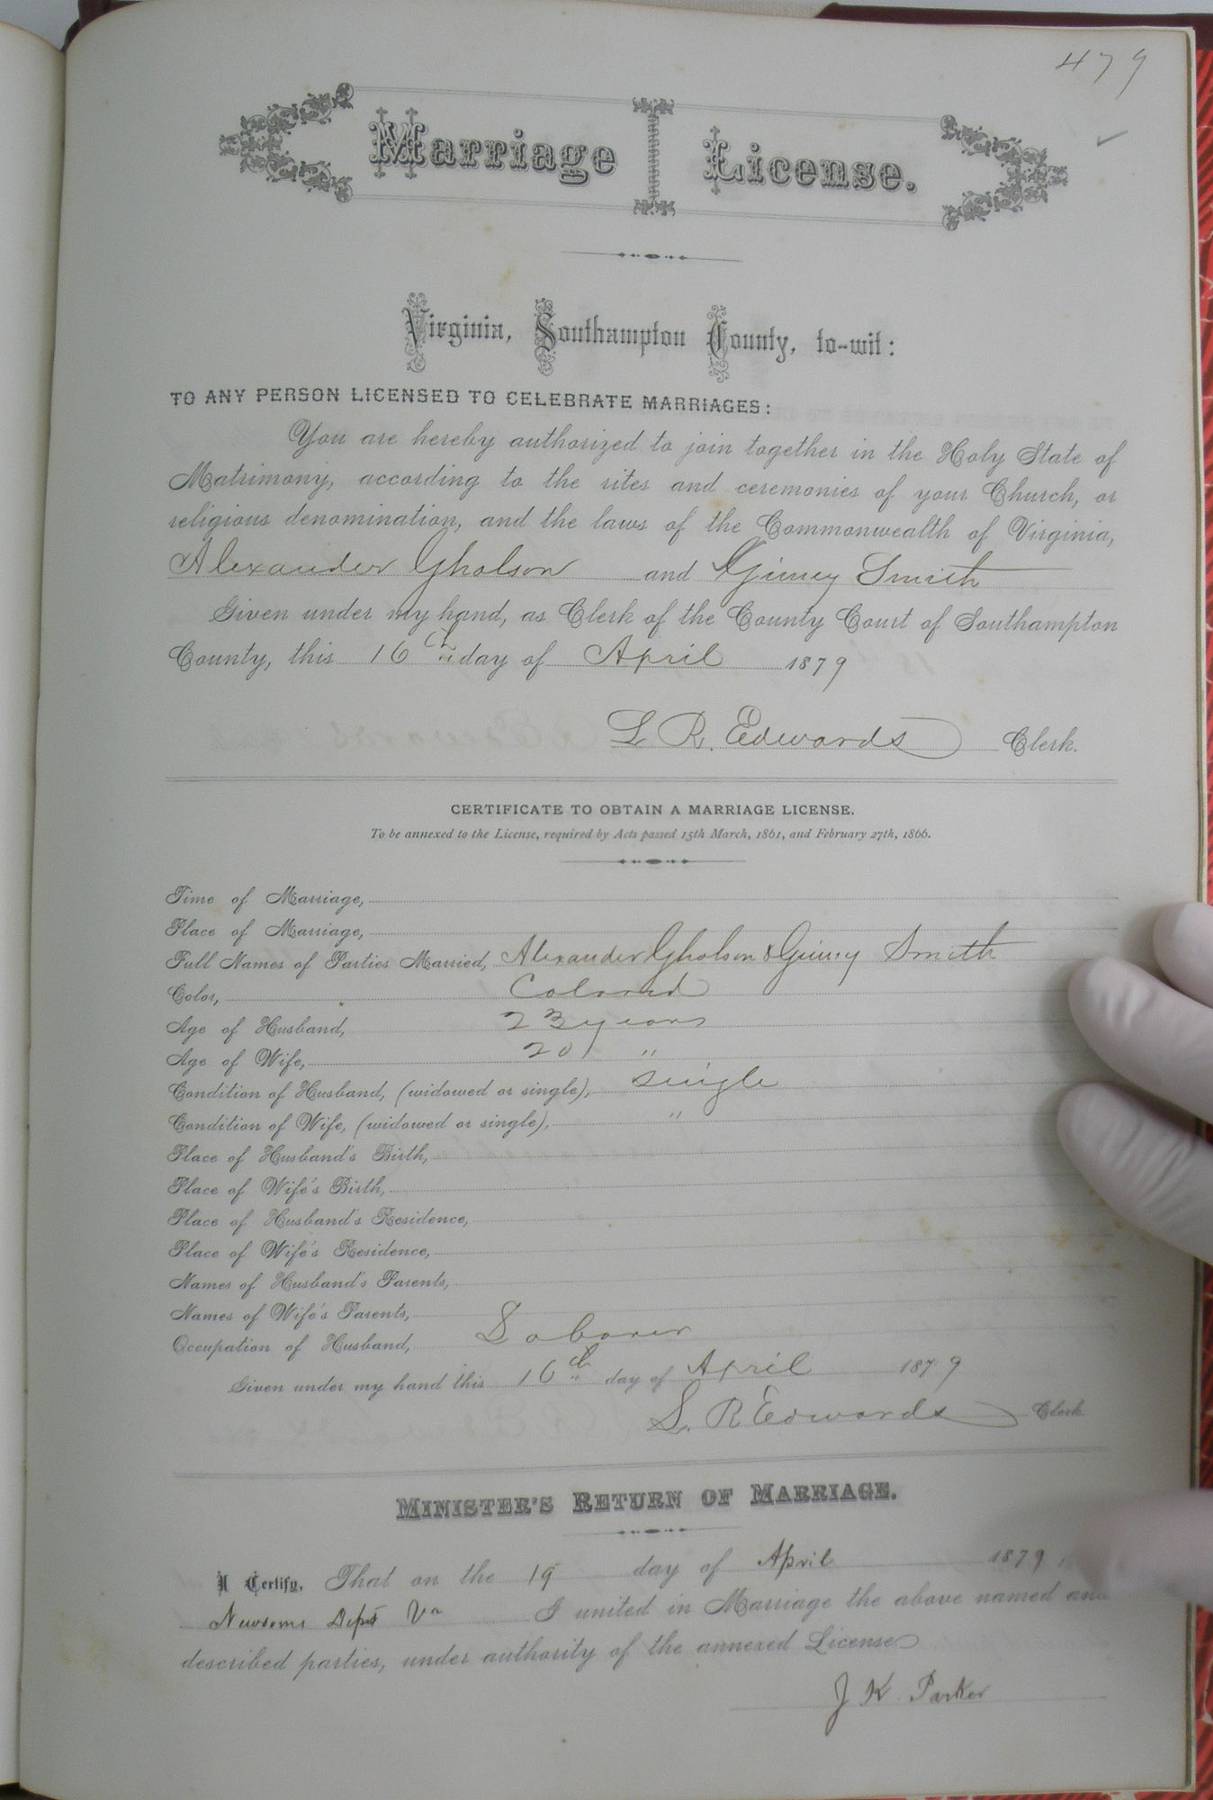 479
Marriage License.
Virginia, Southampton County, to-wit:
TO ANY PERSON LICENSED TO CELEBRATE MARRIAGES:
You are hereby authorized to join together in the Holy State of
Matrimony, according to the rites and ceremonies of your Church, or
religious denomination, and the laws of the Commonwealth of Virginia,
Alexander Gholson and Ginny Smith
Given under my hand, as Clerk of the County Court of Southampton
County, this 16th day of April 1879
L R. Edwards Clerk.
CERTIFICATE TO OBTAIN A MARRIAGE LICENSE.
To be annexed to the License, required by Acts passed 15th March, 1861, and February 27th, 1866.
Time of Marriage,
Place of Marriage,
Full Names of Parties Married, Alexander Gholson & Ginny Smith
Color, Colored
Age of Husband, 23 years
Age of Wife, 20 "
Condition of Husband, (widowed or single), Single
Condition of Wife, (widowed or single), "
Place of Husband's Birth,
Place of Wife's Birth,
Place of Husband's Residence,
Place of Wife's Residence,
Names of Husband's Parents,
Names of Wife's Parents,
Occupation of Husband, Laborer
Given under my hand this 16th day of April 1879
L. R Edwards Clerk
MINISTER'S RETURN OF MARRIAGE.
I Certify, That on the 19 day of April 1879,
Newsoms Depot Va I united in Marriage the above named and
described parties, under authority of the annexed License
J K Parker